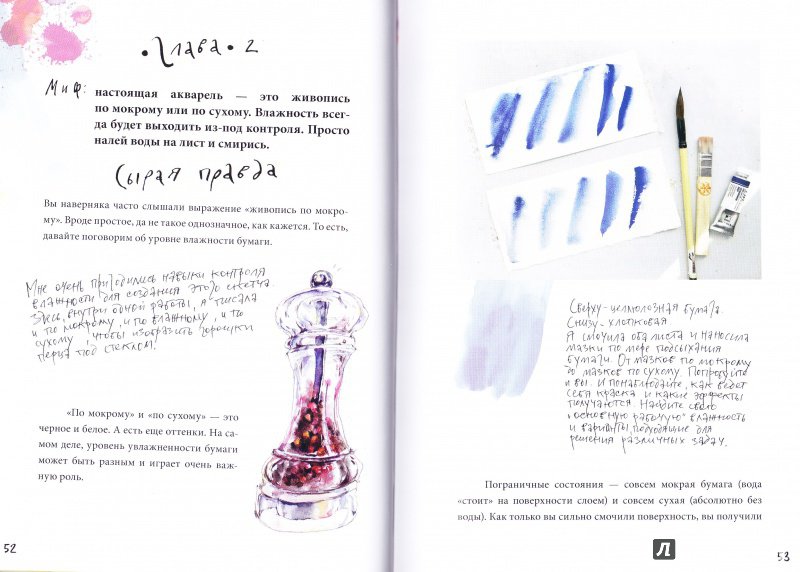 • Глава • 2
Миф: настоящая акварель — это живопись
по мокрому или по сухому. Влажность всег-
да будет выходить из-под контроля. Просто
налей воды на лист и смирись.
Сырая правда
Вы наверняка часто слышали выражение «живопись по мокро-
му». Вроде простое, да не такое однозначное, как кажется. То есть,
давайте поговорим об уровне влажности бумаги.
Мне очень пригодились навыки контроля
влажности для создания этого скетча
Здесь, внутри одной работы, я писала
и по мокрому, и по влажному, и по
сухому, чтобы изобразить горошки
перца под стеклом!
«По мокрому» и «по сухому» — это
черное и белое. А есть еще оттенки. На са-
мом деле, уровень увлажненности бумаги
может быть разным и играет очень важ-
ную роль.
52
Сверху-целлюлозная бумага.
Снизу-хлопковая
Я смочила оба листа и наносила
мазки по мере подсыхания
бумаги. От мазков по мокрому
до мазков по сухому. Попробуйте
и вы. И понаблюдайте, как ведет
себя краска и какие эффекты
получаются. Найдите свою
"основную рабочую" влажность
и варианты, подходящие для
решения различных задач.
Пограничные состояния — совсем мокрая бумага (вода
«стоит» на поверхности слоем) и совсем сухая (абсолютно без
воды). Как только вы сильно смочили поверхность, вы получили
Л
53